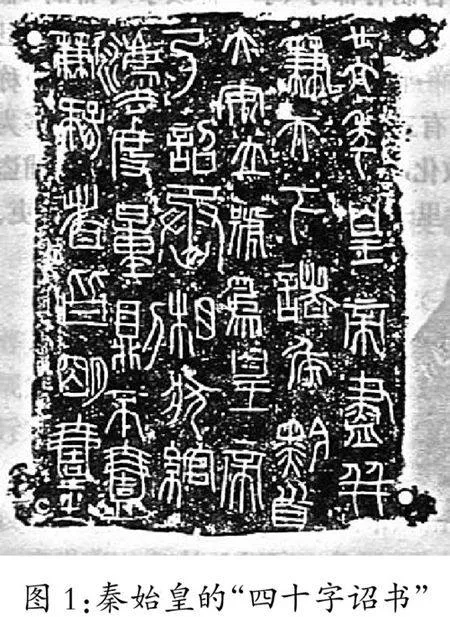 廿六年皇帝盡并
兼天下諸侯黔首
大安立號為皇帝
乃詔丞相狀綰
灋度量則不壹
歉疑者皆明壹之
图 1:秦始皇的“四十字诏书”